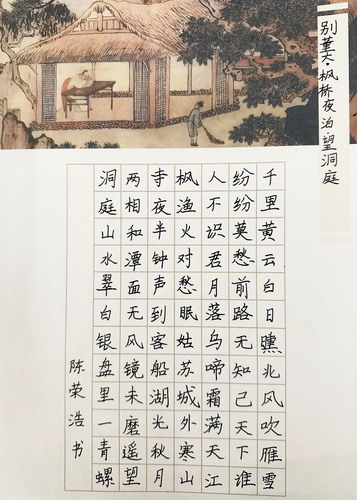 别董大·枫桥夜泊·望洞庭
千里黄云白日曛北风吹雁雪
纷纷莫愁前路无知己天下谁
人不识君月落乌啼霜满天江
枫渔火对愁眠姑苏城外寒山
寺夜半钟声到客船湖光秋月
两相和潭面无风镜未磨遥望
洞庭山水翠白银盘里一青螺
陈荣浩书